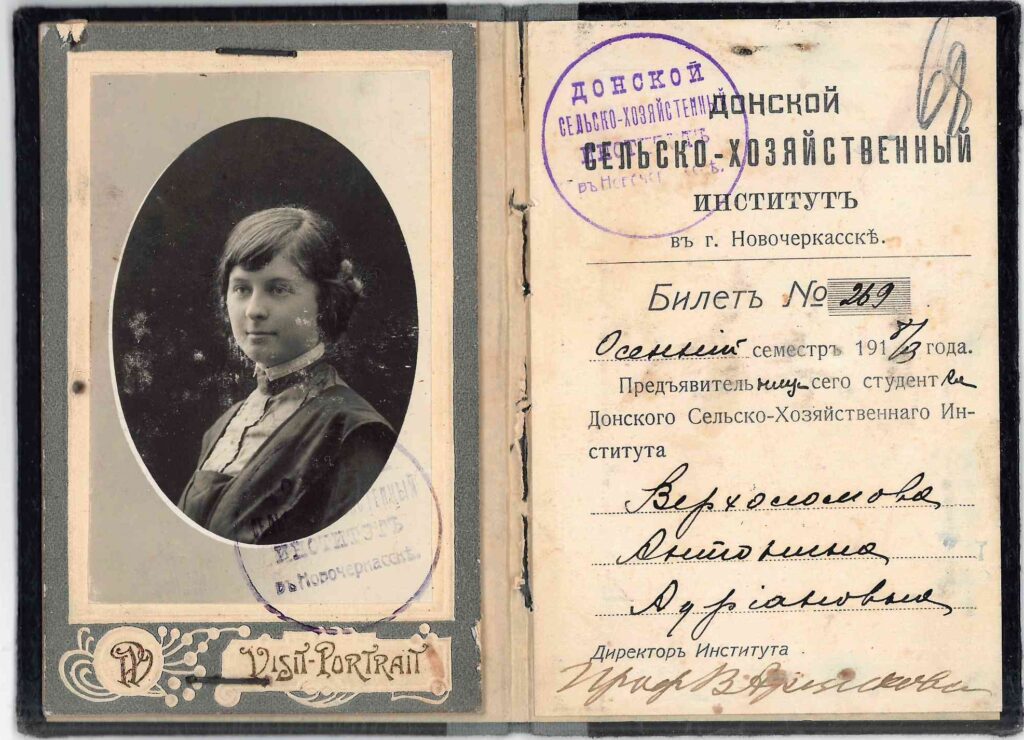 ИНСТИТУТЪ
въ Новочеркасскѣ.
VISIT-PORTRAIT
ДОНСКОЙ
СЕЛЬСКО-ХОЗЯЙСТЕННЫЙ
ИНСТИТУТЪ
68
ДОНСКОЙ
СЕЛЬСКО-ХОЗЯЙСТВЕННЫЙ
ИНСТИТУТЪ
въ г. Новочеркасскѣ.
Билетъ № 269
Осенній семестръ 191 года.
Предъявительница сего студентка
Донского Сельско-Хозяйственнаго Ин-
ститута
Верхоломова
Антонина
Адріановна
Директоръ Института
Проф В